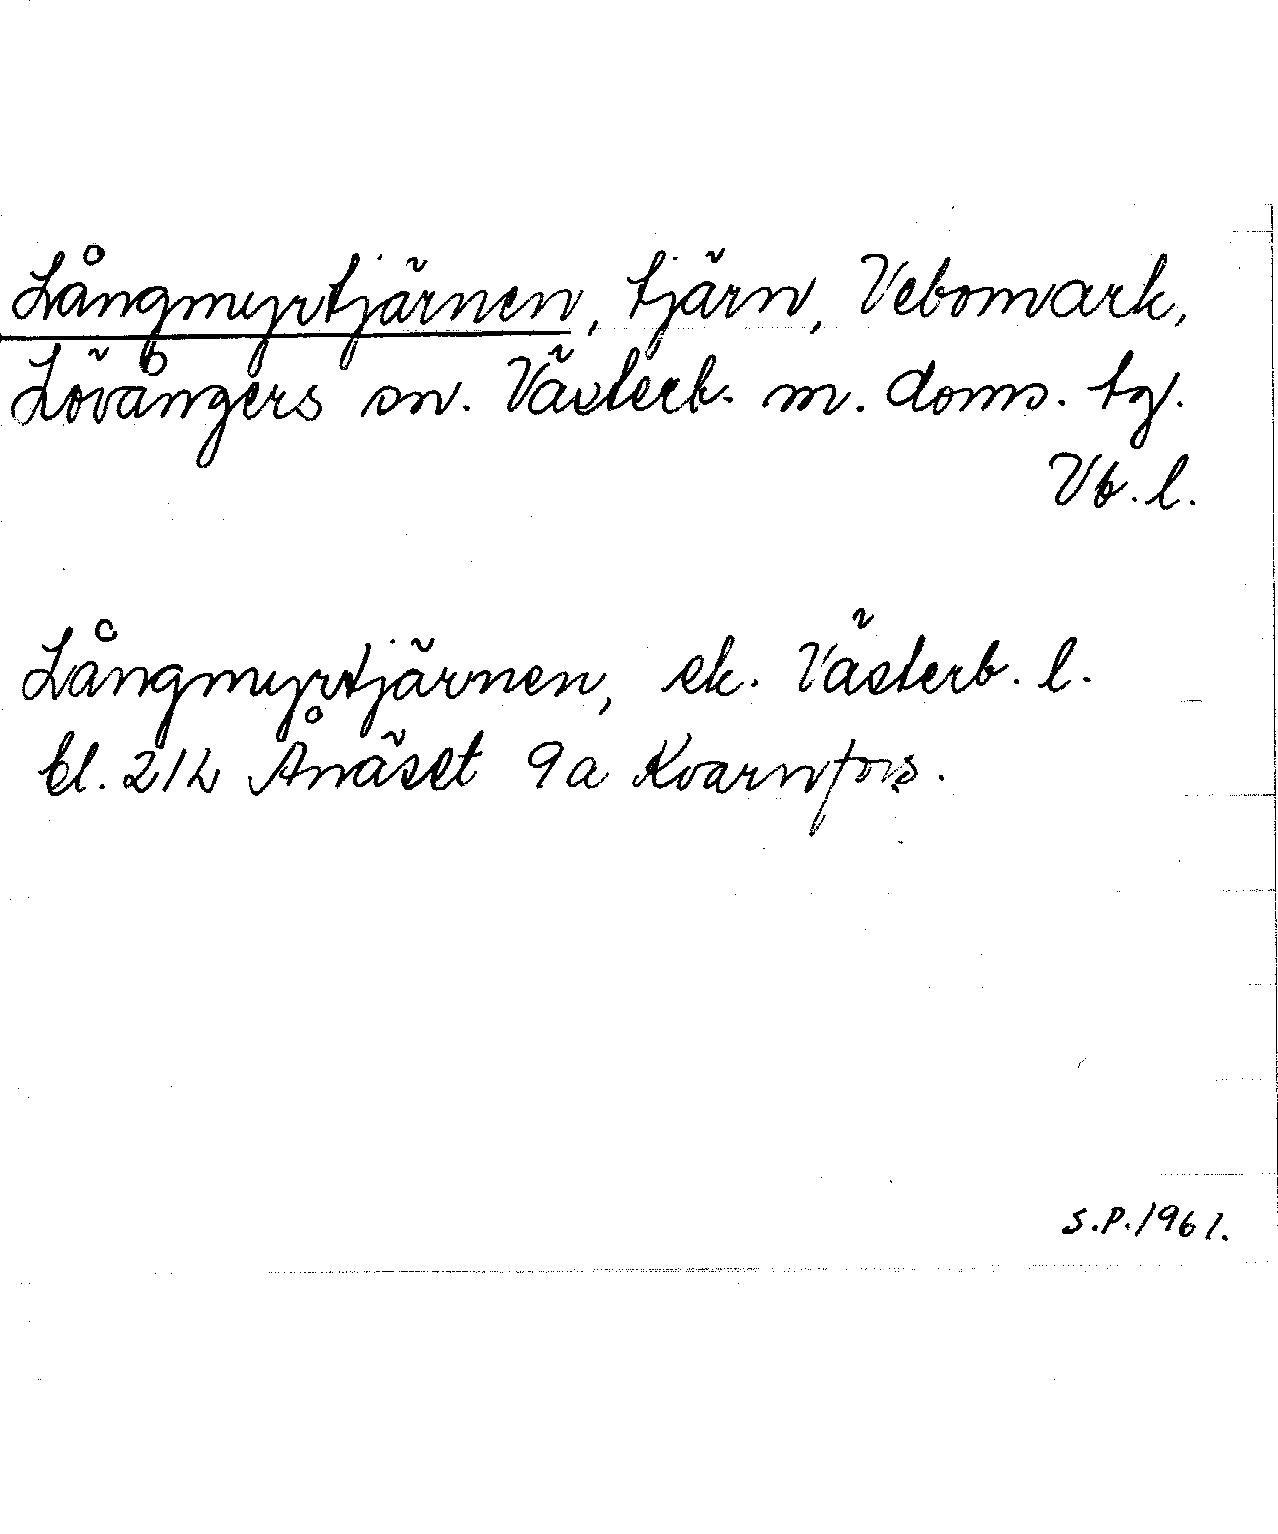 Långmyrtjärnen, tjärn, Vebomark,
Lövångers sn. Västerb. m. doms. tg.
Vb. l.
Långmyrtjärnen, ek. Västerb. l.
bl. 21L Ånäset 9a Kvarnfors.
S.P. 1961.